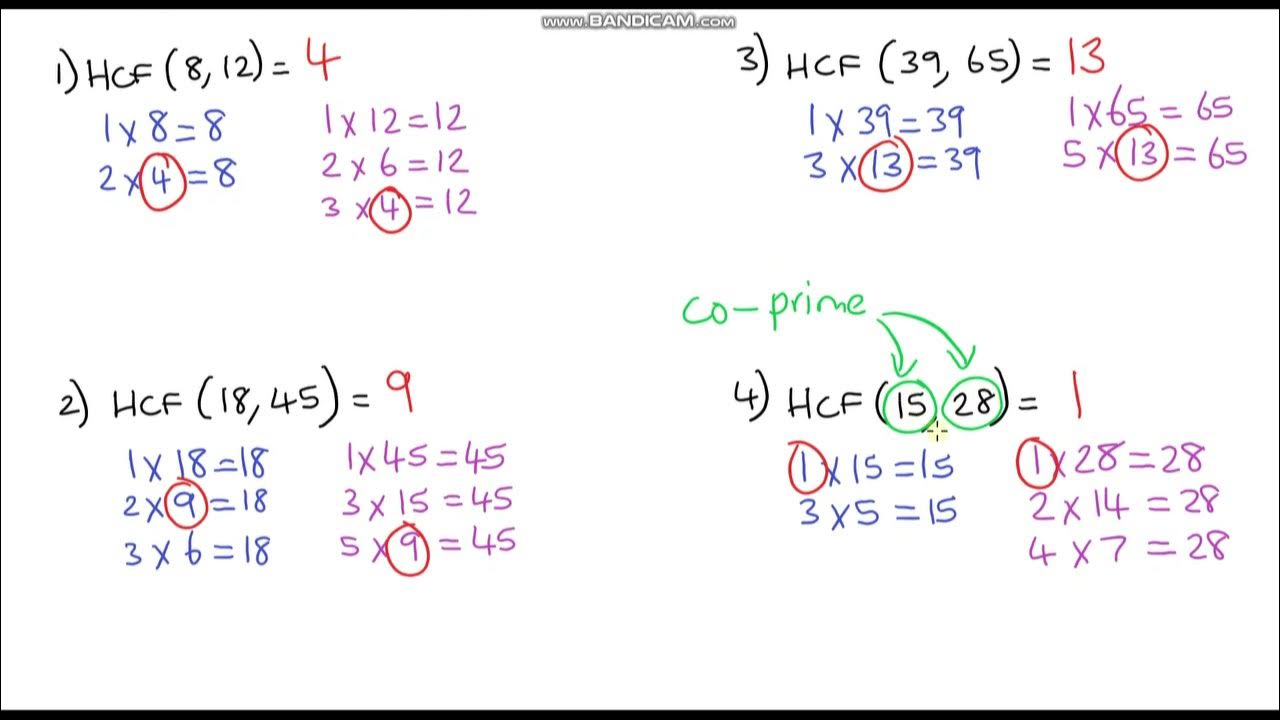 www.BANDICAM.com
1) HCF (8, 12) = 4
1 x 8 = 8
2 x 4 = 8
1 x 12 = 12
2 x 6 = 12
3 x 4 = 12
3) HCF (39, 65) = 13
1 x 39 = 39
3 x 13 = 39
1 x 65 = 65
5 x 13 = 65
2) HCF (18, 45) = 9
1 x 18 = 18
2 x 9 = 18
3 x 6 = 18
1 x 45 = 45
3 x 15 = 45
5 x 9 = 45
co-prime
4) HCF (15, 28) = 1
1 x 15 = 15
3 x 5 = 15
1 x 28 = 28
2 x 14 = 28
4 x 7 = 28